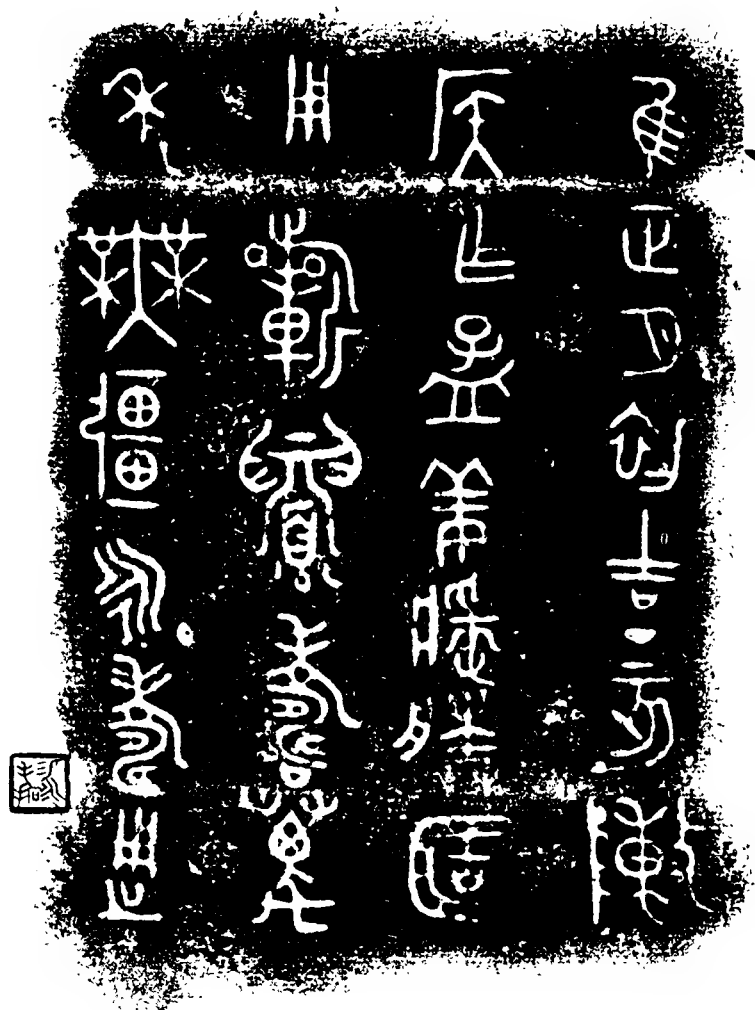 隹正月初吉丁亥陳
侯乍孟姜
用𣄨眉壽萬
年無疆永壽用之